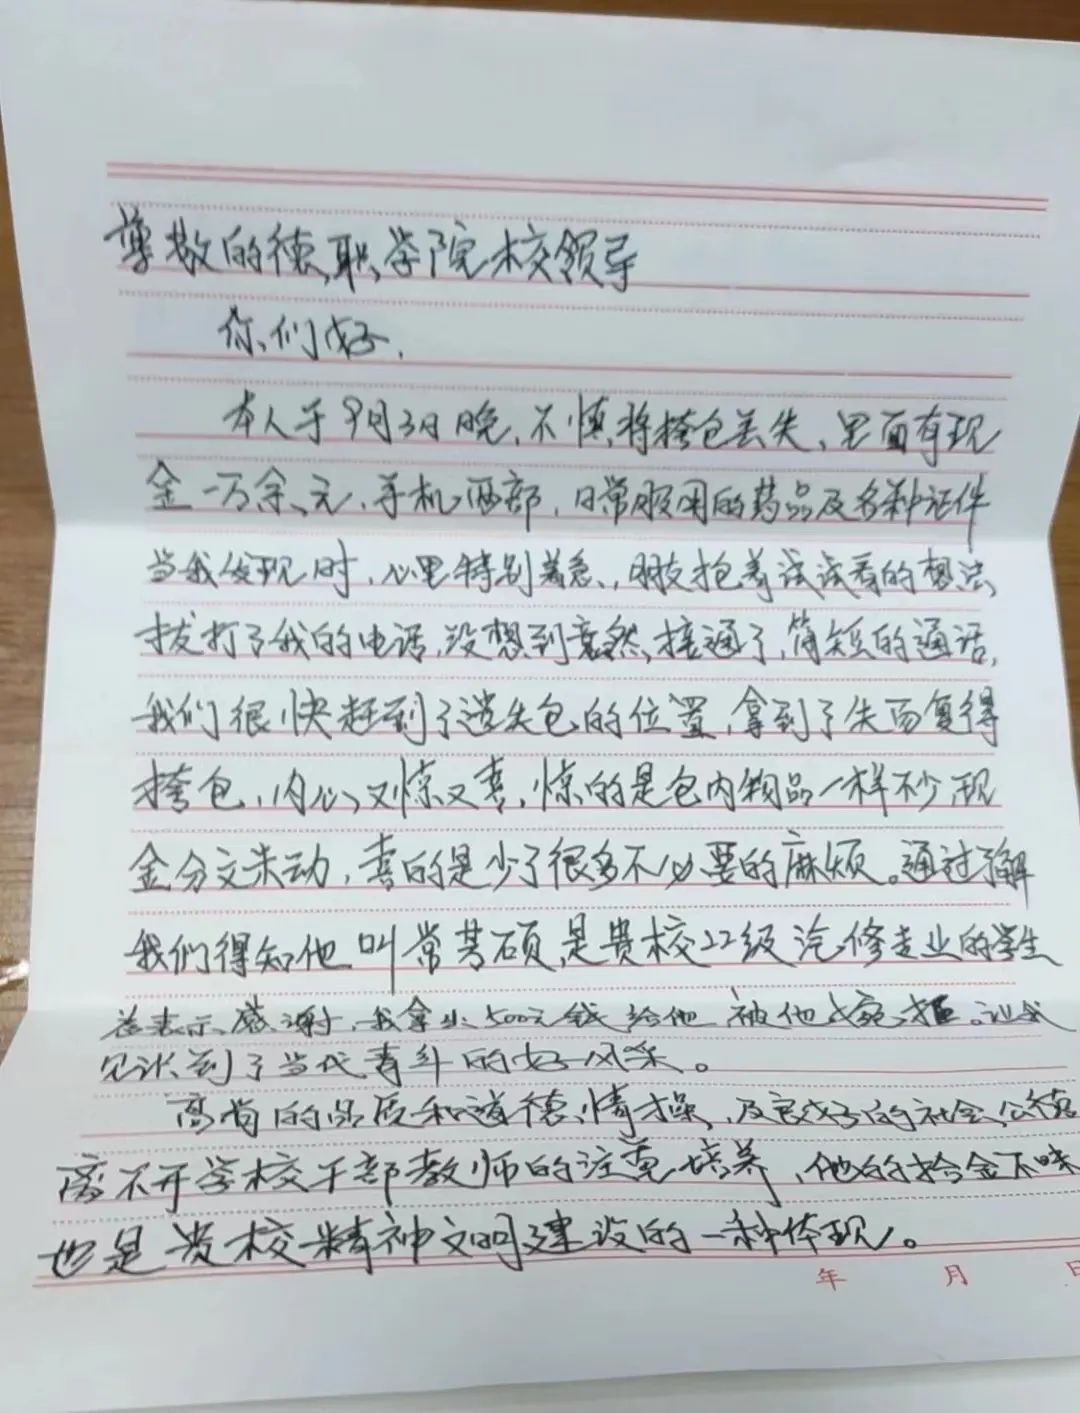 尊敬的德职学院校领导
你们好,
本人于9月3日晚,不慎将挎包丢失,里面有现
金一万余元,手机两部,日常服用的药品及各种证件
当我发现时,心里特别着急,朋友抱着试试看的想法
拔打了我的电话,没想到竟然接通了,简短的通话,
我们很快赶到了遗失包的位置,拿到了失而复得
挎包,内心又惊又喜,惊的是包内物品一样不少,现
金分文未动,喜的是少了很多不必要的麻烦。通过了解
我们得知他叫常其硕,是贵校22级汽修专业的学生
为表示感谢,我拿出500元钱给他被他婉拒。让我
见识到了当代青年的好风采。
高尚的品质和道德情操,及良好的社会公德
离不开学校干部教师的注重培养,他的拾金不昧
也是贵校精神文明建设的一种体现。
年 月 日